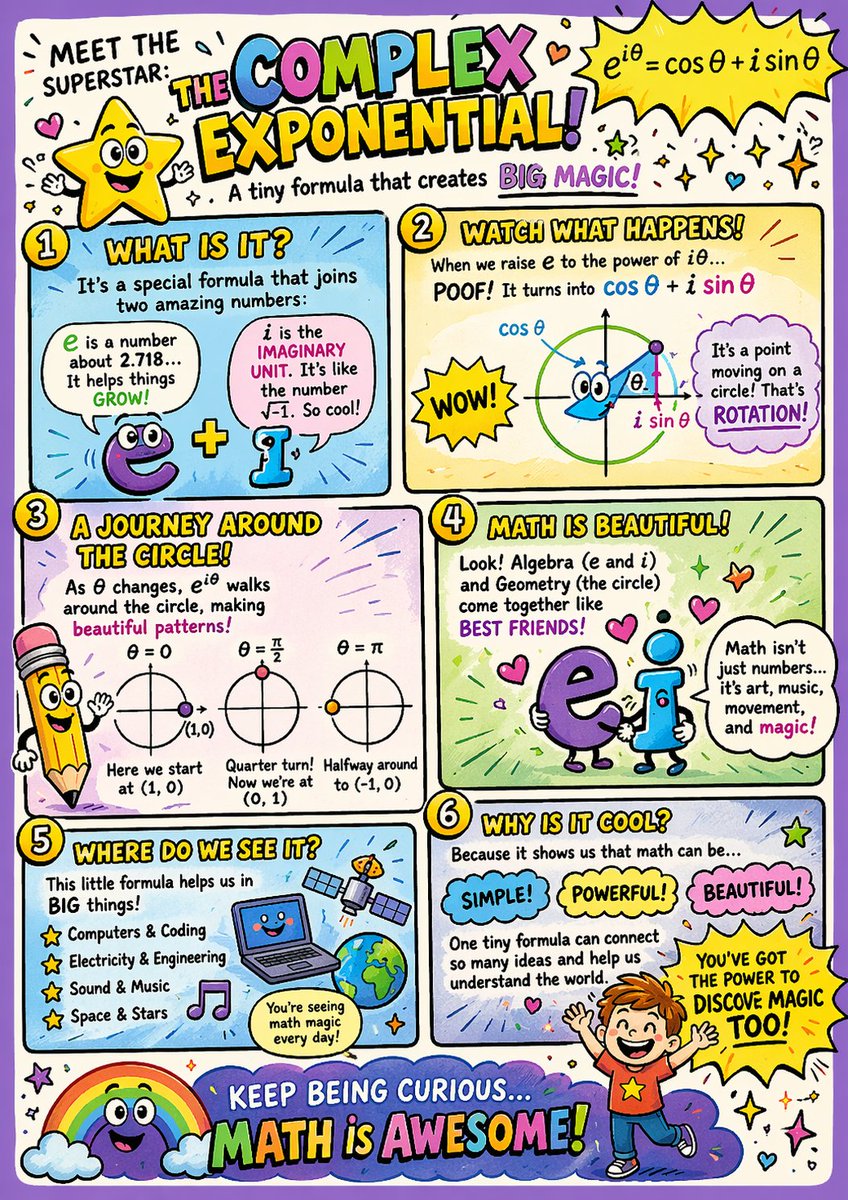 MEET THE
SUPERSTAR:
THE COMPLEX
EXPONENTIAL!
e^{iθ} = cos θ + i sin θ
A tiny formula that creates BIG MAGIC!
1
WHAT IS IT?
It's a special formula that joins
two amazing numbers:
e is a number
about 2.718...
It helps things
GROW!
i is the
IMAGINARY
UNIT. It's like
the number
√-1. So cool!
e + i
2
WATCH WHAT HAPPENS!
When we raise e to the power of iθ...
POOF! It turns into cos θ + i sin θ
cos θ
WOW!
θ
i sin θ
It's a point
moving on a
circle! That's
ROTATION!
3
A JOURNEY AROUND
THE CIRCLE!
As θ changes, e^{iθ} walks
around the circle, making
beautiful patterns!
θ = 0
(1,0)
Here we start
at (1, 0)
θ = π/2
Quarter turn!
Now we're at
(0, 1)
θ = π
Halfway around
to (-1, 0)
4
MATH IS BEAUTIFUL!
Look! Algebra (e and i)
and Geometry (the circle)
come together like
BEST FRIENDS!
e i
Math isn't
just numbers...
it's art, music,
movement,
and magic!
5
WHERE DO WE SEE IT?
This little formula helps us in
BIG things!
Computers & Coding
Electricity & Engineering
Sound & Music
Space & Stars
You're seeing
math magic
every day!
6
WHY IS IT COOL?
Because it shows us that math can be...
SIMPLE!
POWERFUL!
BEAUTIFUL!
One tiny formula can connect
so many ideas and help us
understand the world.
YOU'VE GOT
THE POWER TO
DISCOVE MAGIC
TOO!
KEEP BEING CURIOUS...
MATH iS AWESOME!